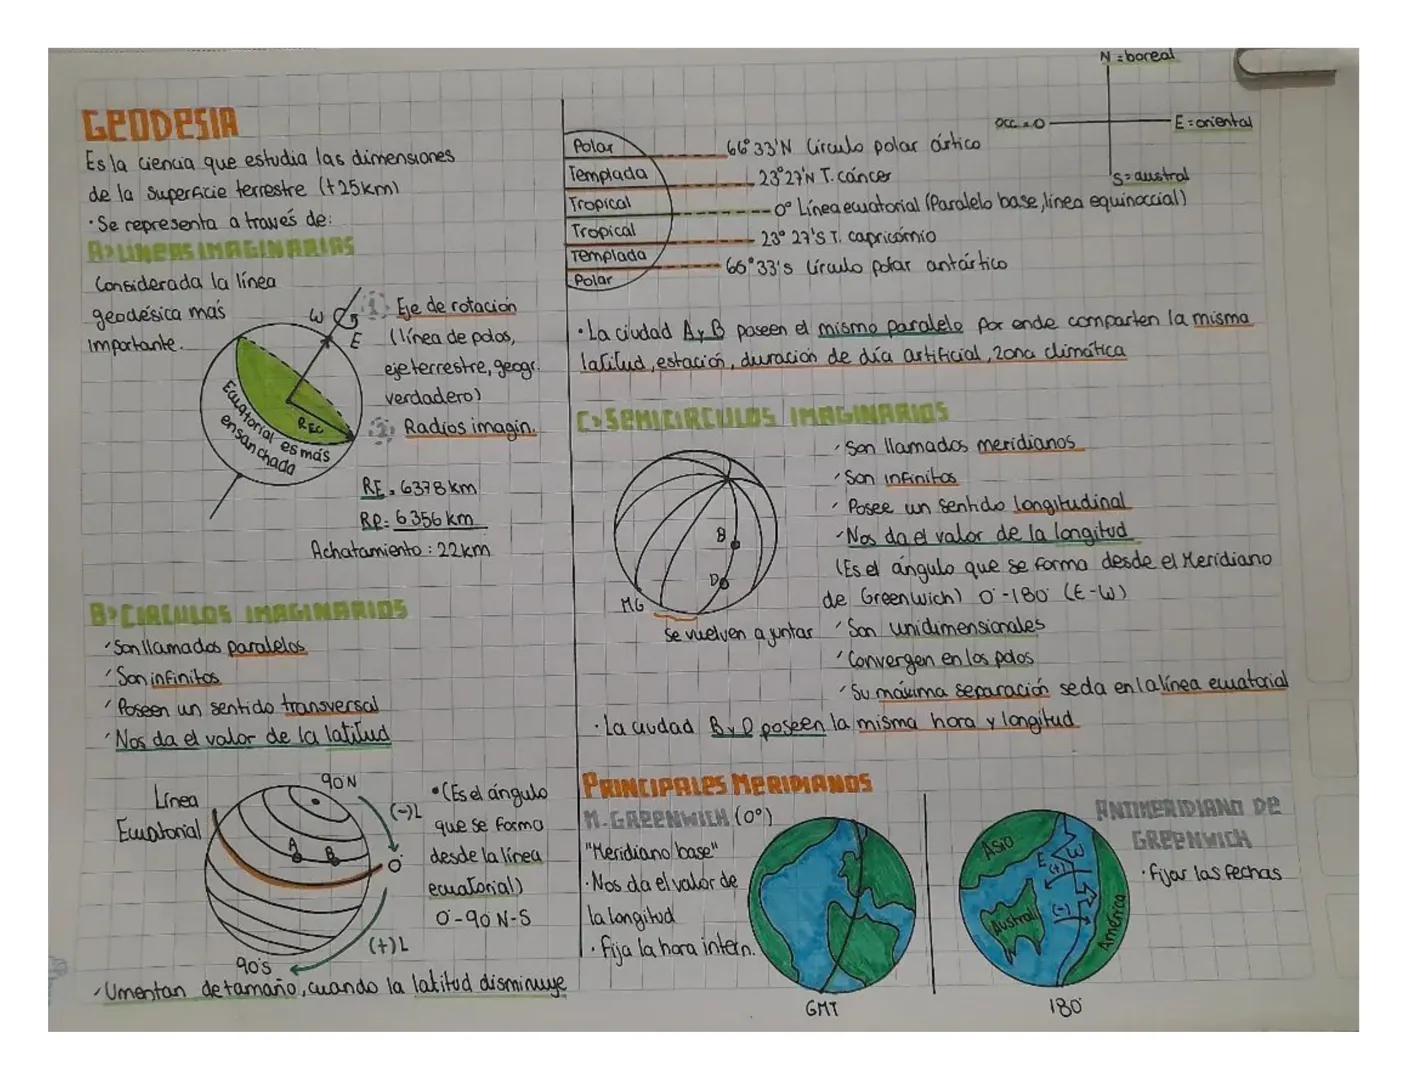 GEODESIA
Es la ciencia que estudia las dimensiones
de la superficie terrestre (+25km)
· Se representa a través de:
A> LÍNEAS IMAGINARIAS
Considerada la línea
geodésica más
importante.
W
E
1
Eje de rotación
(línea de polos,
eje terrestre, geogr.
verdadero)
2
Radios imagin.
REC
Ecuatorial es más
ensanchada
RE = 6378 km
RP = 6356 km
Achatamiento: 22km
B> CÍRCULOS IMAGINARIOS
Son llamados paralelos
Son infinitos
Poseen un sentido transversal
Nos da el valor de la latitud
Línea
Ecuatorial
90°N
A
B
(-)L
0°
(+)L
90°S
• (Es el ángulo
que se forma
desde la línea
ecuatorial)
0°-90° N-S
Umentan de tamaño, cuando la latitud disminuye
N = boreal
Occ = O
E = oriental
S = austral
Polar
Templada
Tropical
Tropical
Templada
Polar
66°33'N Círculo polar ártico
23°27'N T. cáncer
0° Línea ecuatorial (Paralelo base, línea equinoccial)
23° 27'S T. capricórnio
66°33's Círculo polar antártico
· La ciudad A y B poseen el mismo paralelo por ende comparten la misma
latitud, estación, duración de día artificial, zona climática
C> SEMICIRCULOS IMAGINARIOS
B
D
MG
Se vuelven a juntar
Son llamados meridianos
Son infinitos
Posee un sentido longitudinal
Nos da el valor de la longitud
(Es el ángulo que se forma desde el Meridiano
de Greenwich) 0°-180° (E-W)
Son unidimensionales
Convergen en los polos
Su máxima separación se da en la línea ecuatorial
· La ciudad B y D poseen la misma hora y longitud
PRINCIPALES MERIDIANOS
M. GREENWICH (0°)
"Meridiano base"
· Nos da el valor de
la longitud
· Fija la hora intern.
GMT
Asia
E
W
(+)
(-)
Austral
América
180°
ANTIMERIDIANO DE
GREENWICH
· Fijar las fechas